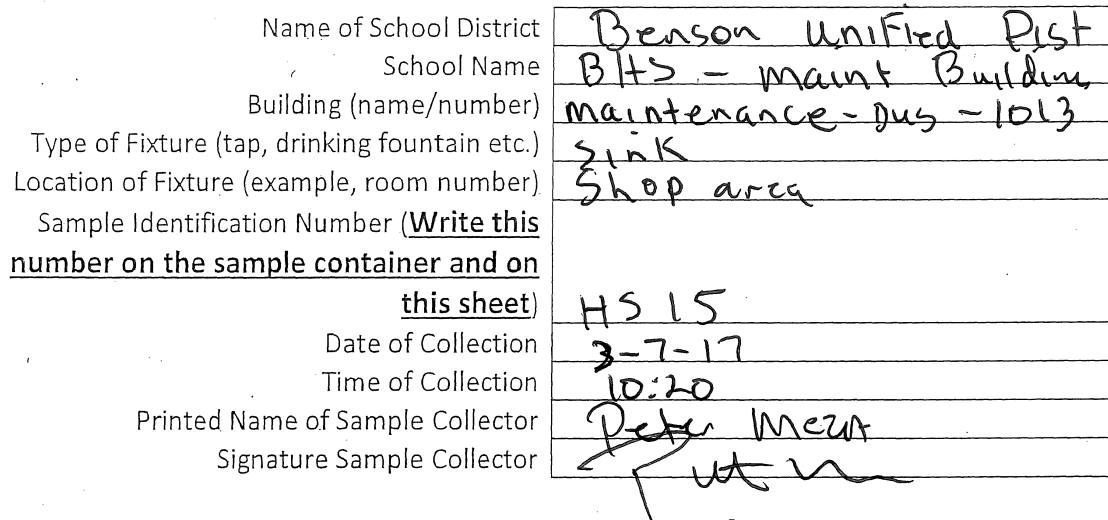 Name of School District Benson Unified Dist
School Name BHS - Maint Building
Building (name/number) maintenance - DUS - 1013
Type of Fixture (tap, drinking fountain etc.) Sink
Location of Fixture (example, room number) Shop area
Sample Identification Number (Write this
number on the sample container and on
this sheet) HS 15
Date of Collection 3-7-17
Time of Collection 10:20
Printed Name of Sample Collector Peter Meza
Signature Sample Collector